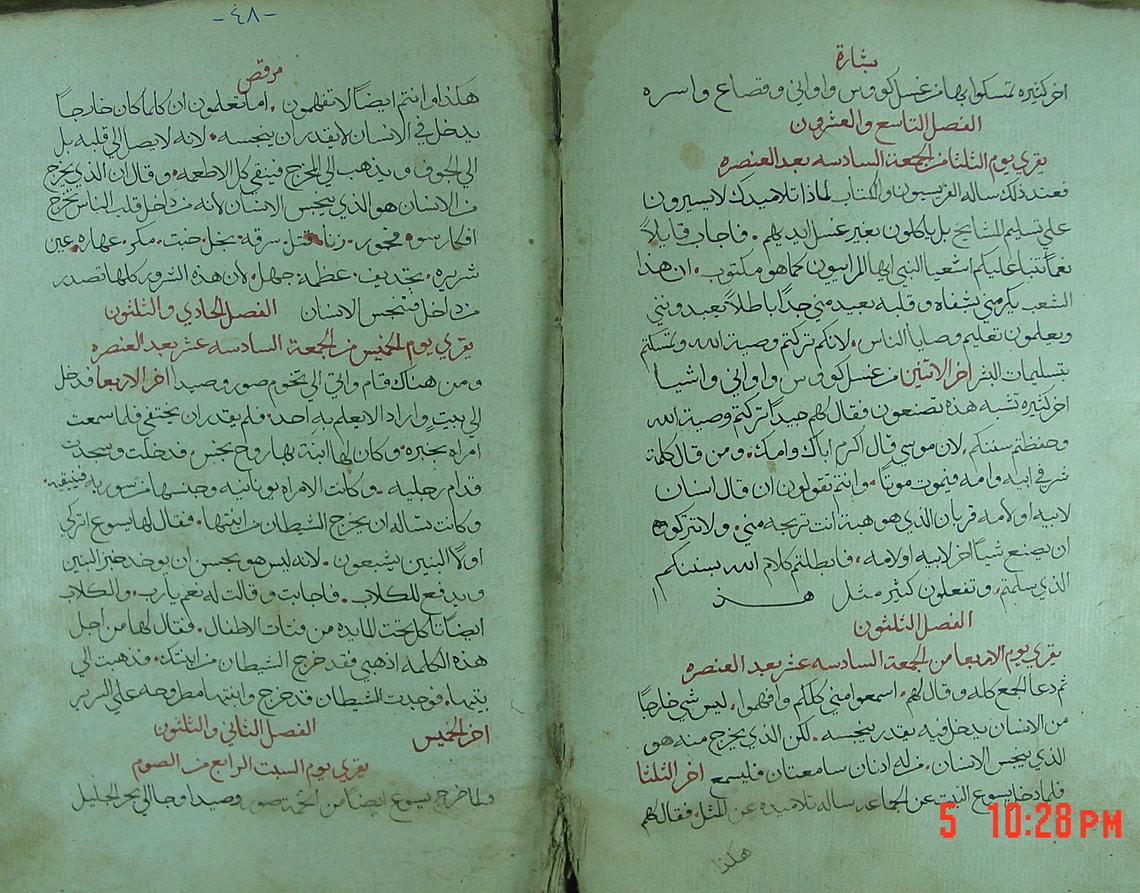 بشارة
اخر كثيره تمسكوا بها من غسل كووس واواني وقصاع واسره
الفصل التاسع والعشرون
يقري يوم الثلثا من الجمعة السادسه بعد العنصره
فعند ذلك ساله الفريسيون والكتاب لماذا تلاميدك لا يسيرون
علي تسليم المشايخ بل ياكلون بغير غسل ايديهم . فاجاب قايلاً
نعماً تنبا عليكم اشعيا النبي ايها المرايون كما هو مكتوب . ان هذا
الشعب يكرمني بشفاه وقلبه بعيد مني جداً باطلاً يعبدونني
ويعلمون تعليم وصايا الناس . لانكم تركتم وصية الله وتمسكتم
بتسليمات البشر اخر الاثنين من غسل كووس واواني واشيا
اخر كثيره تشبه هذه تصنعون فقال لهم جيداً تركتم وصية الله
وحفظتم سننكم . لان موسي قال اكرم اباك وامك . ومن قال كلمة
شر في ابيه وامه فيموت موتاً . وانتم تقولون ان قال انسان
لابيه او لامه قربان الذي هو هبة انت تربحه مني . ولا تتركوه
ان يصنع شياً اخر لابيه او لامه . فابطلتم كلام الله بسننكم
الذي سلمتم . وتفعلون كثير مثل هذا
الفصل الثلثون
يقري يوم الاربعا من الجمعة السادسه عشر بعد العنصره
ثم دعا الجمع كله وقال لهم . اسمعوا مني كلكم وافهموا . ليس شي خارجاً
من الانسان يدخل فيه يقدر ينجسه . لكن الذي يخرج منه هو
الذي ينجس الانسان . من له ادنان سامعتان فليسمع اخر الثلثا
فلما دخل يسوع البيت عن الجماعه ساله تلاميده عن المثل . فقال لهم
هكذا
-٤٨-
مرقص
هكذا وانتم ايضاً لا تفهمون . اما تعلمون ان كلما كان خارجاً
يدخل في الانسان لا يقدر ان ينجسه . لانه لا يصل الي قلبه بل
الي الجوف ويذهب الي المخرج فينقي كل الاطعمه . وقال ان الذي يخرج
من الانسان هو الذي ينجس الانسان لانه من داخل قلب الناس تخرج
افكار سو . فجور . زنا . قتل . سرقه . بخل . خبث . مكر . عهاره . عين
شريره . تجديف . عظمة . جهل . لان هذه الشرور كلها تصدر
من داخل فتنجس الانسان الفصل الحادي والثلثون
يقري يوم الخميس من الجمعة السادسه عشر بعد العنصره
ومن هناك قام واتي الي تخوم صور وصيدا اخر الاربعا فدخل
الي بيتٍ واراد الا يعلم به احد . فلم يقدر ان يختفي فلما سمعت
امراه بخبره . وكان لها ابنة بها روح نجس . فدخلت وسجدت
قدام رجليه . وكانت الامراه يونانيه وجنسها من سوريه فينيقيه
وكانت تساله ان يخرج الشيطان من ابنتها . فقال لها يسوع اتركي
اولاً البنين يشبعون . لانه ليس هو بحسن ان يوخد خبز البنين
ويدفع للكلاب . فاجابت وقالت له نعم يارب . والكلاب
ايضاً تاكل تحت المايده من فتات الاطفال . فقال لها من اجل
هذه الكلمه اذهبي فقد خرج الشيطان من ابنتك . فذهبت الي
بيتها . فوجدت الشيطان قد خرج وابنتها مطروحه علي السرير
اخر الخميس الفصل الثاني والثلثون
يقري يوم السبت الرابع من الصوم
فلما خرج يسوع ايضاً من تخم صور وصيدا وجا الي بحر الجليل
5 10:28PM